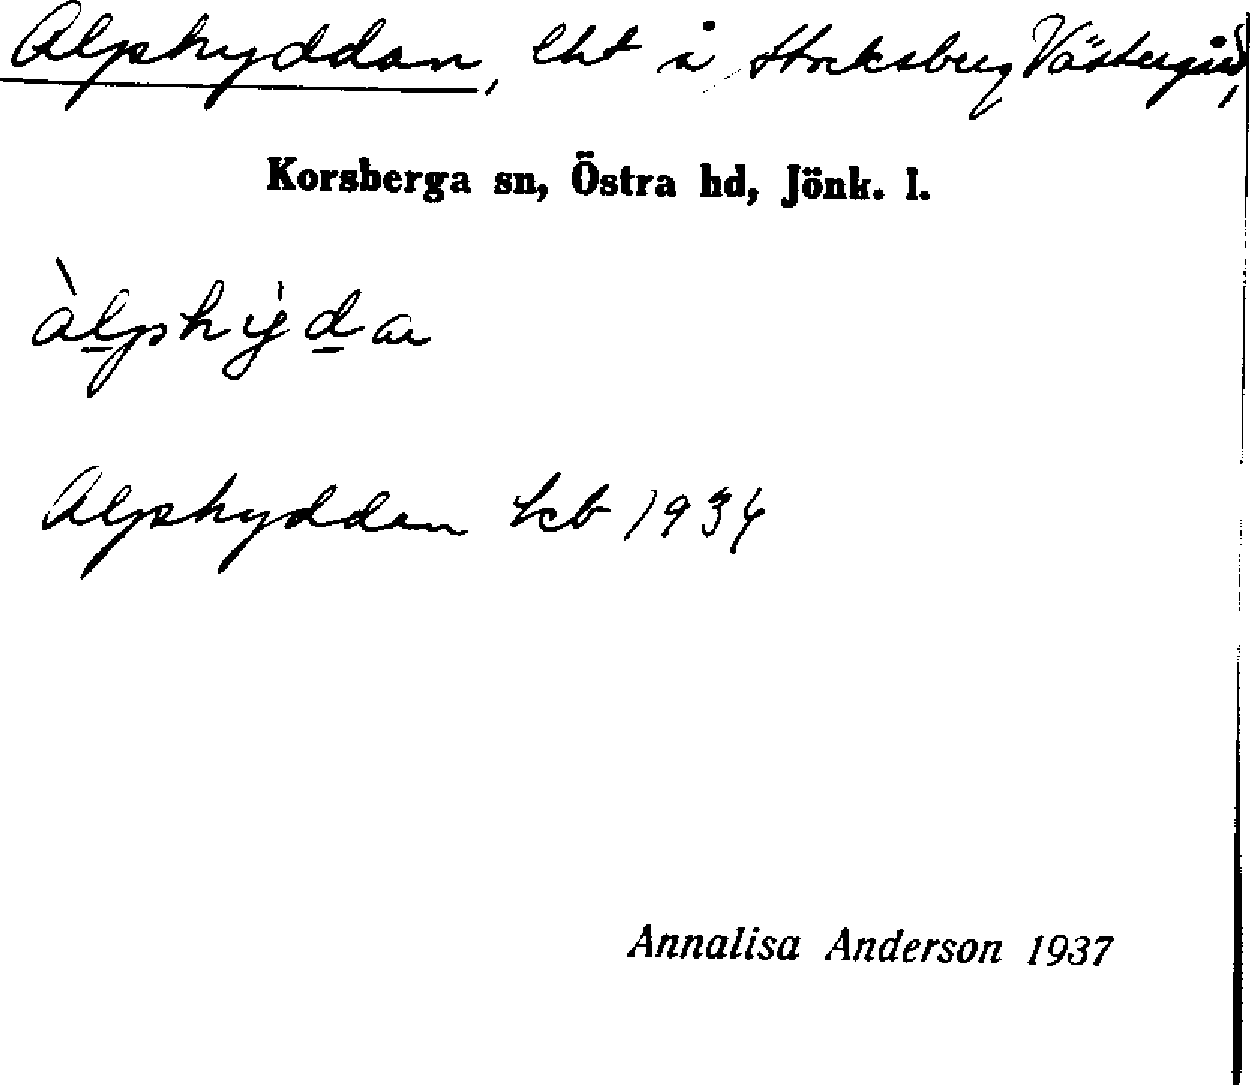 Alphyddan, lht å Stocksberg Västergård,
Korsberga sn, Östra hd, Jönk. l.
àlphy̍da
Alphyddan kb 1934
Annalisa Anderson 1937